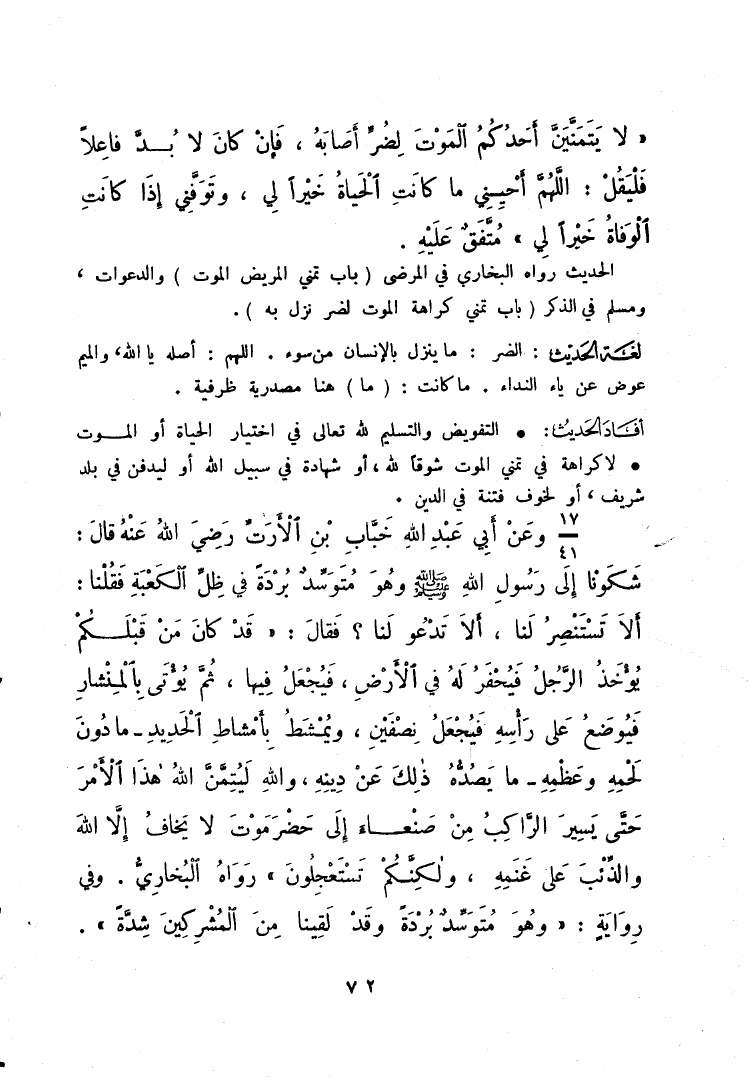 « لا يَتَمَنَّيَنَّ أَحَدُكُمُ ٱلمَوْتَ لِضُرٍّ أَصَابَهُ ، فَإِنْ كانَ لا بُـــدَّ فاعِلاً
فَلْيَقُلْ : اللَّهُمَّ أَحْيِنِي ما كانَتِ ٱلْحَياةُ خَيْراً لِي ، وتَوَفَّنِي إِذَا كانَتِ
ٱلْوَفاةُ خَيْراً لِي » مُتَّفَقٌ عَلَيْهِ .
الحديث رواه البخاري في المرضى ( باب تمني المريض الموت ) والدعوات ،
ومسلم في الذكر ( باب تمني كراهة الموت لضر نزل به ) .
لغـــة الحديث : الضر : ما ينزل بالإنسان من سوء . اللهم : أصله يا الله، والميم
عوض عن ياء النداء . ما كانت : ( ما ) هنا مصدرية ظرفية .
أفـــاد الحديث : • التفويض والتسليم لله تعالى في اختيار الحياة أو المـــوت
• لا كراهة في تمني الموت شوقاً لله ، أو شهادة في سبيل الله أو ليدفن في بلد
شريف ، أو لخوف فتنة في الدين .
١٧/٤١ وعَنْ أَبِي عَبْدِ اللهِ خَبَّابِ بْنِ ٱلْأَرَتِّ رَضِيَ اللهُ عَنْهُ قالَ :
شَكَوْنا إِلَى رَسُولِ اللهِ ﷺ وهُوَ مُتَوَسِّدٌ بُرْدَةً في ظِلِّ ٱلْكَعْبَةِ فَقُلْنا :
أَلاَ تَسْتَنْصِرُ لَنا ، أَلاَ تَدْعُو لَنا ؟ فَقالَ : « قَدْ كانَ مَنْ قَبْلَـــكُمْ
يُؤْخَذُ الرَّجُلُ فَيُحْفَرُ لَهُ في ٱلْأَرْضِ ، فَيُجْعَلُ فِيها ، ثُمَّ يُؤْتَى بِٱلْمِنْشارِ
فَيُوضَعُ عَلى رَأْسِهِ فَيُجْعَلُ نِصْفَيْنِ ، ويُمْشَطُ بِأَمْشاطِ ٱلْحَدِيدِ ـ ما دُونَ
لَحْمِهِ وعَظْمِهِ ـ ما يَصُدُّهُ ذٰلِكَ عَنْ دِينِهِ ، واللهِ لَيُتِمَّنَّ اللهُ هٰذا ٱلْأَمْرَ
حَتَّى يَسِيرَ الرَّاكِبُ مِنْ صَنْعـــاءَ إِلَى حَضْرَمَوْتَ لا يَخافُ إِلَّا اللهَ
والذِّئْبَ عَلى غَنَمِهِ ، ولٰكِنَّكُمْ تَسْتَعْجِلُونَ » رَوَاهُ ٱلْبُخارِيُّ . وفي
رِوَايَةٍ : « وهُوَ مُتَوَسِّدٌ بُرْدَةً وقَدْ لَقِينا مِنَ ٱلمُشْرِكِينَ شِدَّةً » .
٧٢